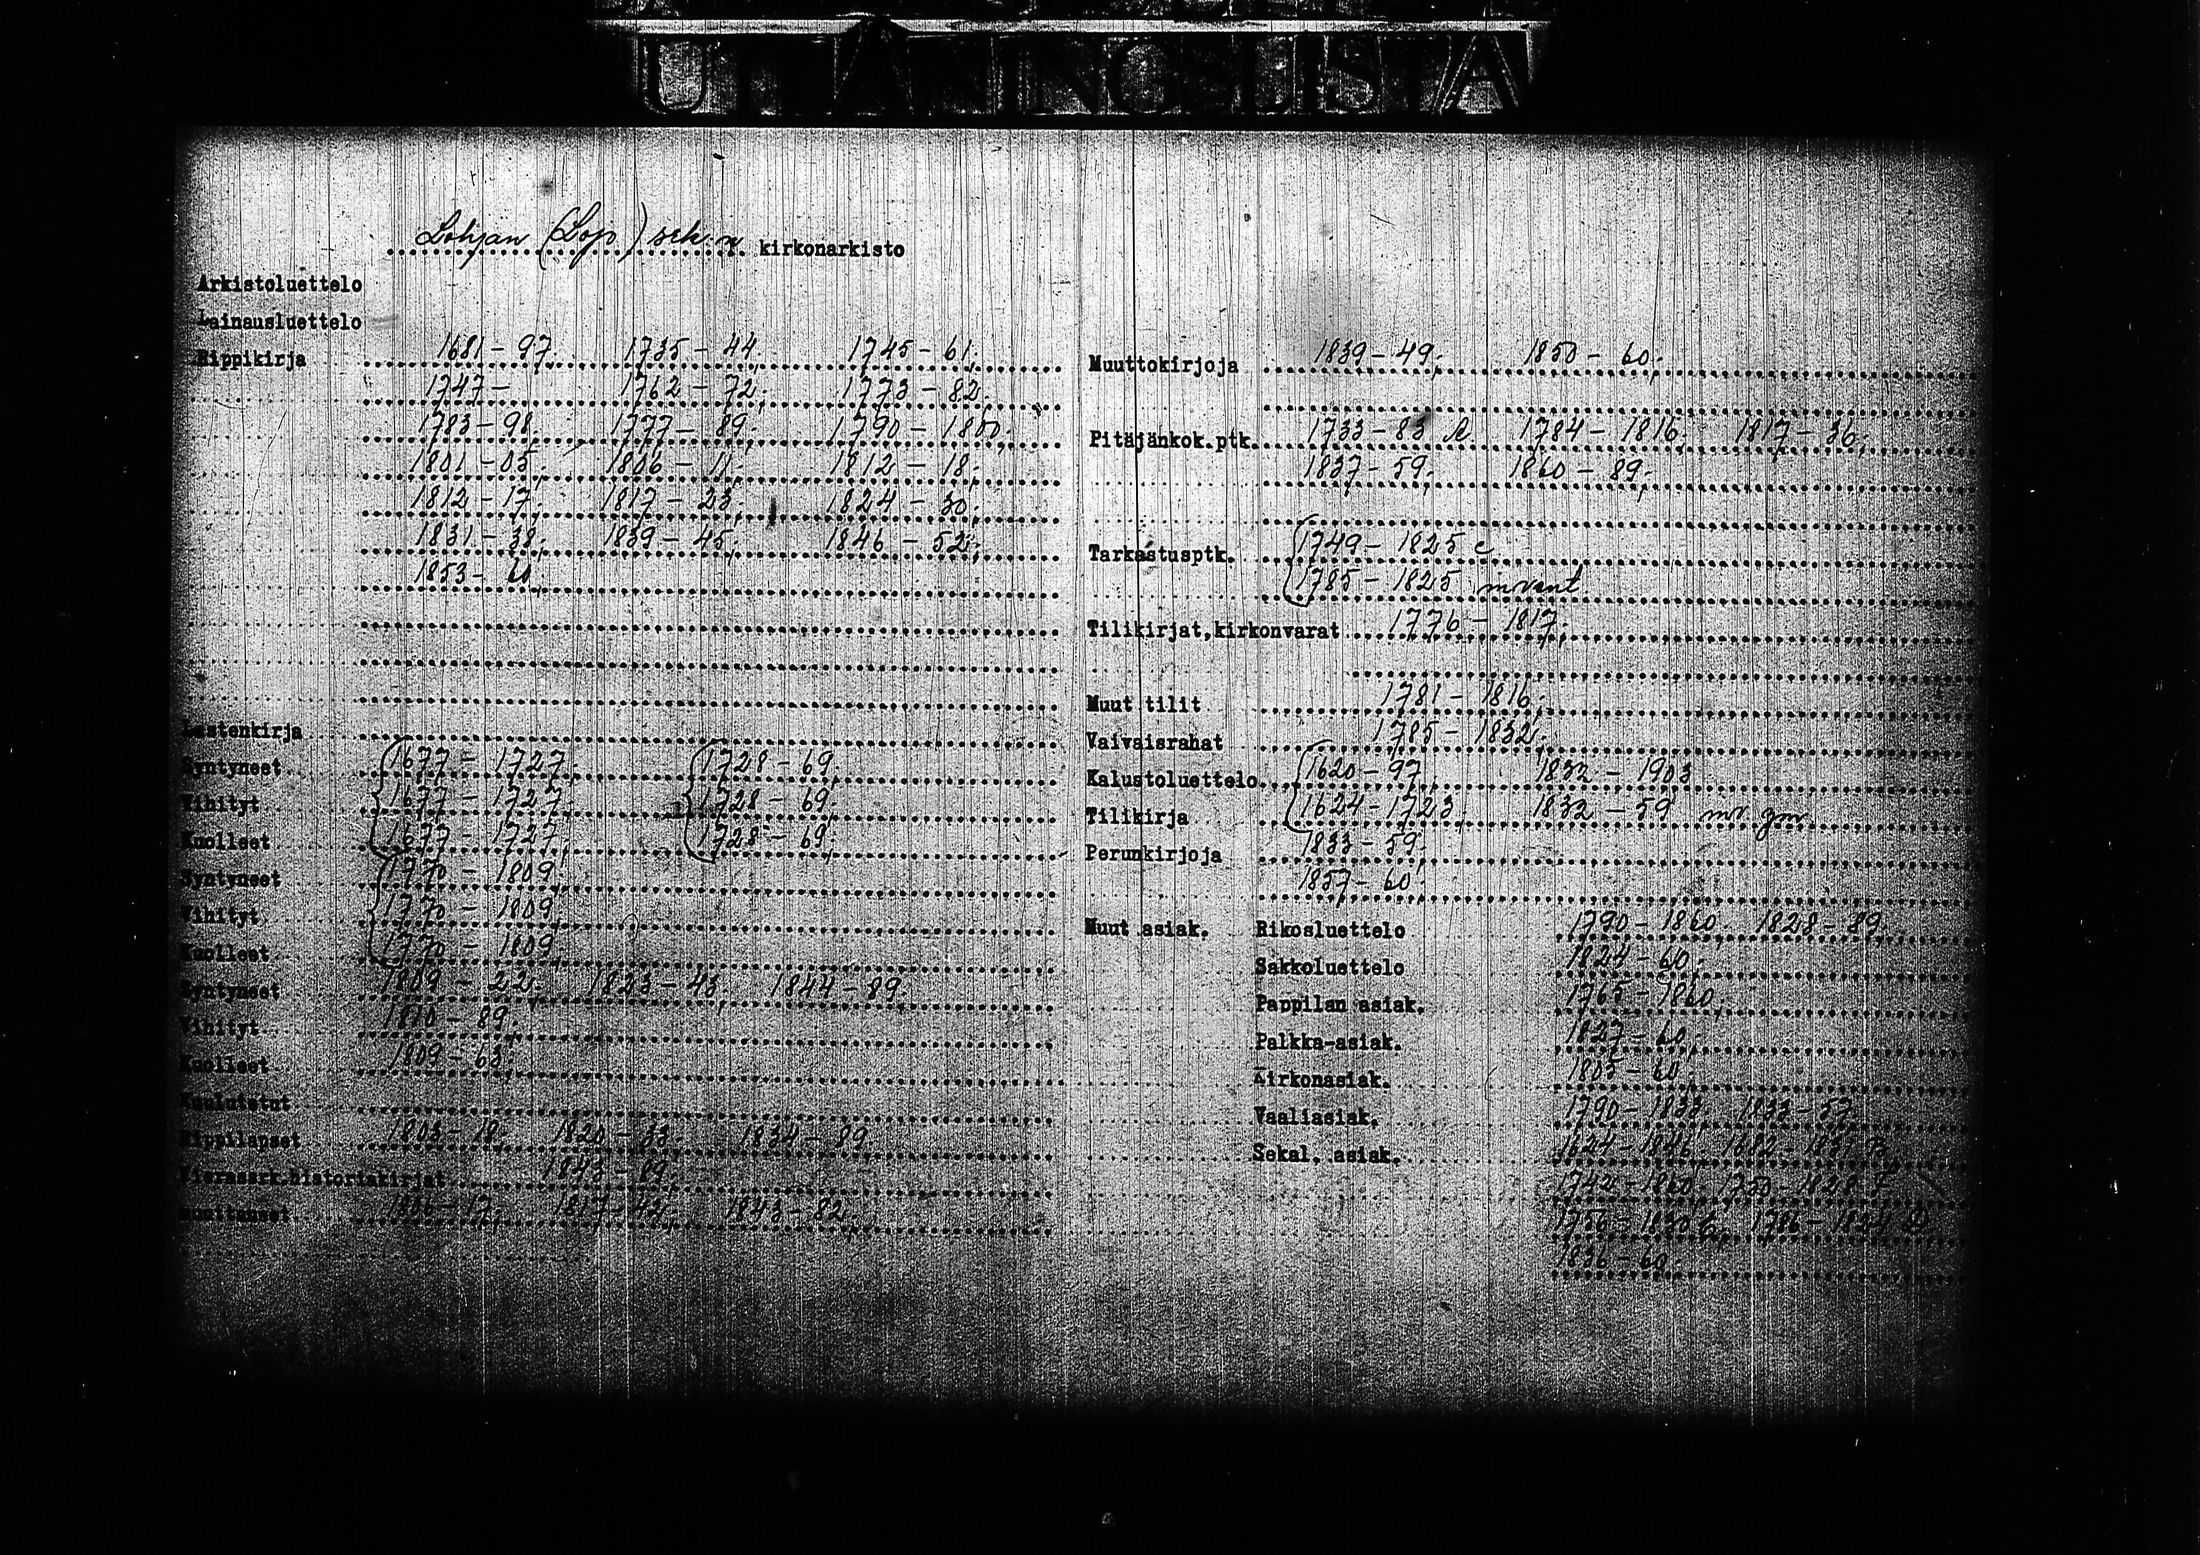 UTTAENINGSLISTA
Lohjan (Lojo) srk:n kirkonarkisto
Arkistoluettelo
Lainausluettelo
Rippikirja 1681-97. 1735-44. 1745-61.
1747- 1762-72. 1773-82.
1783-98. 1777-89. 1790-1800.
1801-05. 1806-11. 1812-18.
1812-17. 1817-23. 1824-30.
1831-38. 1839-45. 1846-52.
1853-60.
Lastenkirja
Syntyneet 1677-1727. 1728-69.
Vihityt 1677-1727. 1728-69.
Kuolleet 1677-1727. 1728-69.
Syntyneet 1770-1809.
Vihityt 1770-1809.
Kuolleet 1770-1809.
Syntyneet 1809-22. 1823-43. 1844-89.
Vihityt 1810-89.
Kuolleet 1809-63.
Kuulutetut
Rippilapset 1803-18. 1820-33. 1834-89.
Vierassrk.historiakirjat 1843-89.
Muuttaneet 1806-17. 1817-42. 1843-82.
Muuttokirjoja 1839-49. 1850-60.
Pitäjänkok.ptk. 1733-83 1784-1816. 1817-36.
1837-59. 1860-89.
Tarkastusptk. 1749-1825 c
1785-1825
Tilikirjat,kirkonvarat 1776-1817.
Muut tilit 1781-1816.
Vaivaisrahat 1785-1832.
Kalustoluettelo 1620-97. 1832-1903
Tilikirja 1624-1723. 1832-59
Perunkirjoja 1833-59.
1857-60.
Muut asiak. Rikosluettelo 1790-1860. 1828-89.
Sakkoluettelo 1824-60.
Pappilan asiak. 1765-1860.
Palkka-asiak. 1827-60.
Kirkonasiak. 1805-60.
Vaaliasiak. 1790-1833. 1833-57.
Sekal. asiak. 1624-1846.
1742-1860.
1836-60.